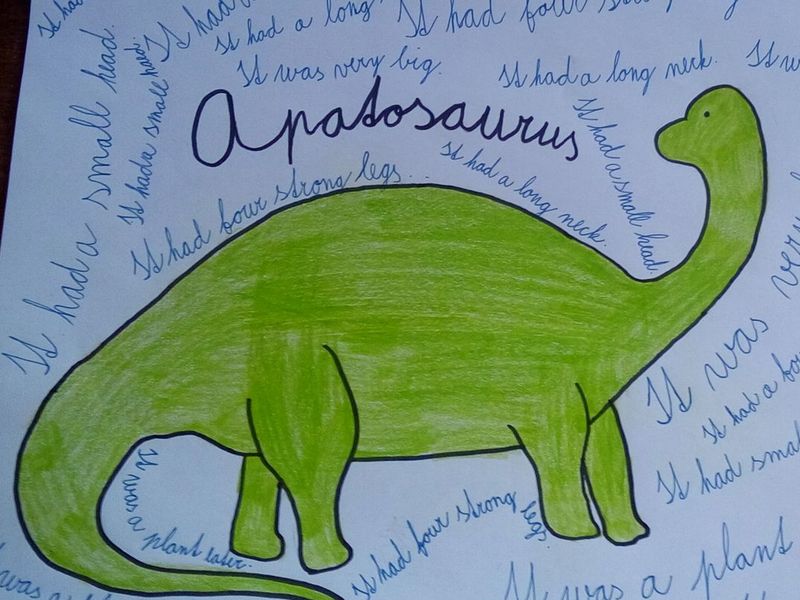 It had
It had
It had a long
It had four
It was very big.
It had a long neck.
It w
Apatosaurus
It had a small head.
It had a small head.
It had four strong legs...
It had a long neck.
It had a small head.
It was very
It had a
It had small
It was a plant eater.
It had four strong legs.
It was a plant
was a